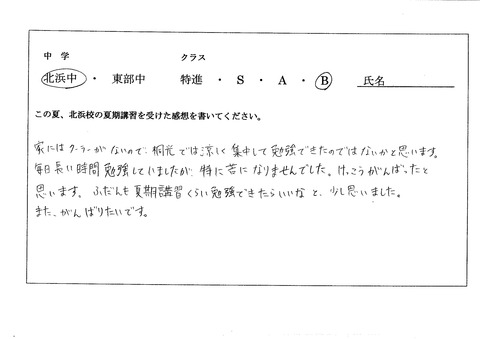 中学 クラス
北浜中 ・ 東部中 特進 ・ S ・ A ・ B 氏名
この夏、北浜校の夏期講習を受けた感想を書いてください。
家にはクーラーがないので、桐光では涼しく集中して勉強できたのではないかと思います。
毎日長い時間勉強していましたが、特に苦になりませんでした。けっこうがんばったと
思います。ふだんも夏期講習くらい勉強できたらいいなと、少し思いました。
また、がんばりたいです。